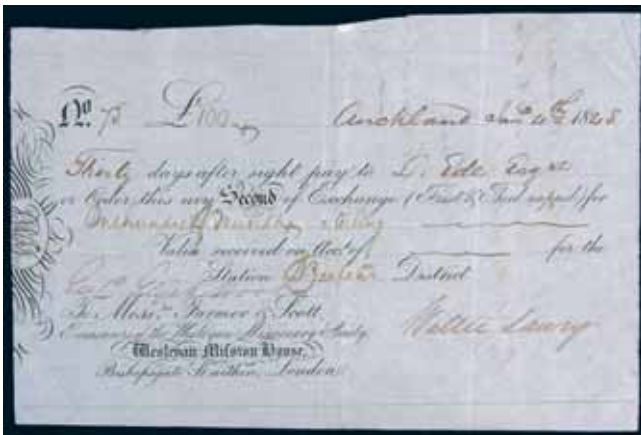 No. 75 £100 Auckland Jany 4th 1848
Thirty days after sight pay to D. Ede Esqre
or Order, this my Second of Exchange (First & Third unpaid) for
One hundred Pounds Sterling
Value received on Acct. of for the
Station District
To Messrs. Farmer & Scott,
Treasurers of the Wesleyan Missionary Society,
Wesleyan Mission House,
Bishopsgate St. within, London.
Walter Lawry